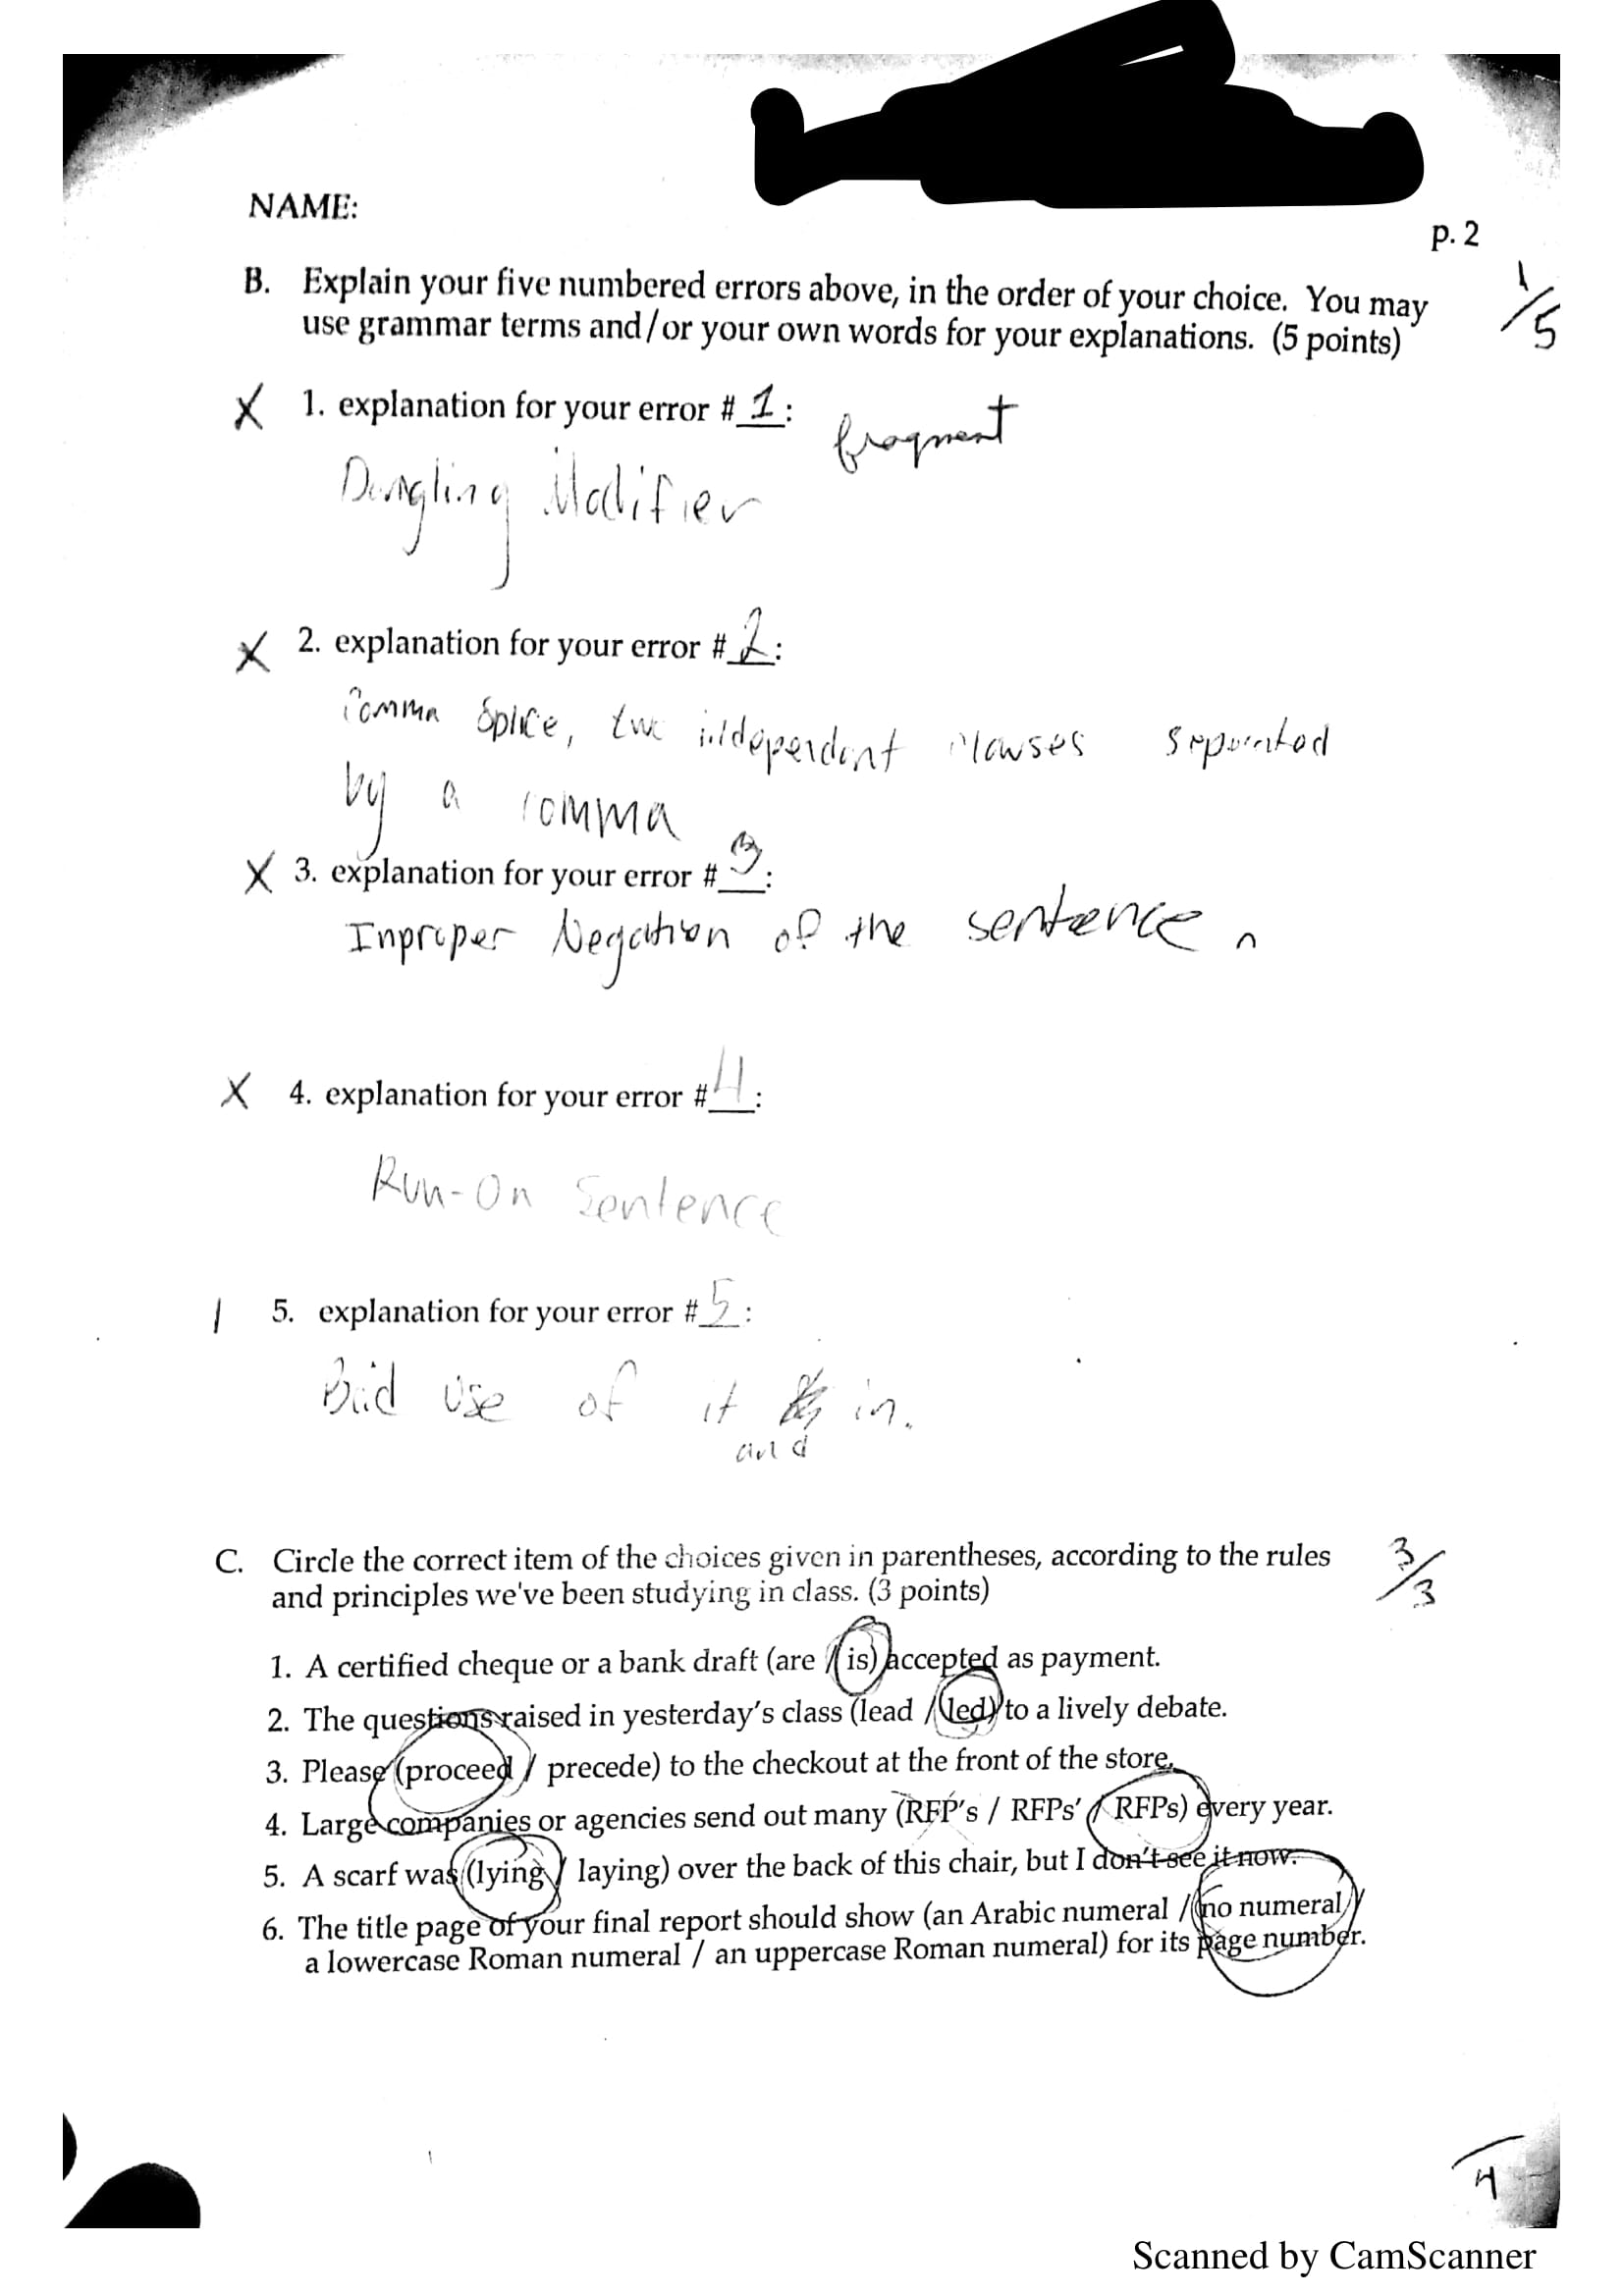 NAME:
p. 2
B. Explain your five numbered errors above, in the order of your choice. You may
use grammar terms and/or your own words for your explanations. (5 points)
1/5
X 1. explanation for your error # 1 : fragment
Dangling Modifier
X 2. explanation for your error # 2 :
Comma Splice, two independent clauses separated
by a comma
X 3. explanation for your error # 3 :
Inproper Negation of the sentence.
X 4. explanation for your error # 4 :
Run-On Sentence
1 5. explanation for your error # 5 :
Bad use of it in.
and
C. Circle the correct item of the choices given in parentheses, according to the rules
and principles we've been studying in class. (3 points)
3/3
1. A certified cheque or a bank draft (are / is) accepted as payment.
2. The questions raised in yesterday's class (lead / led) to a lively debate.
3. Please (proceed / precede) to the checkout at the front of the store.
4. Large companies or agencies send out many (RFP's / RFPs' / RFPs) every year.
5. A scarf was (lying / laying) over the back of this chair, but I don't see it now.
6. The title page of your final report should show (an Arabic numeral / no numeral /
a lowercase Roman numeral / an uppercase Roman numeral) for its page number.
4
Scanned by CamScanner